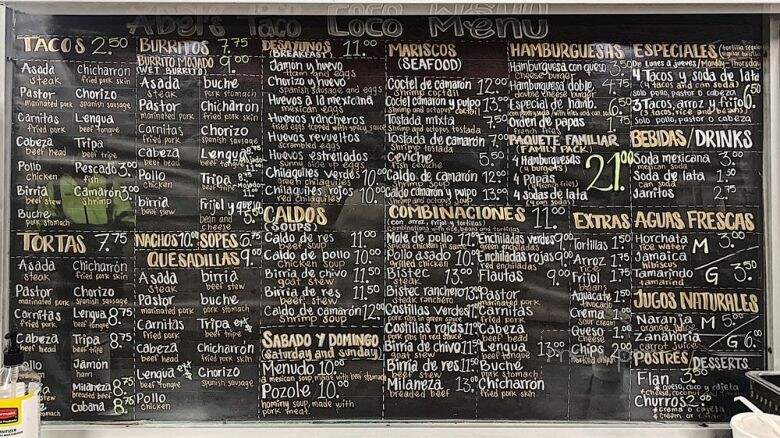 Abel's Taco Loco Menu
TACOS 2.50
Asada
steak
Chicharrón
fried pork skin
Pastor
marinated pork
Chorizo
spanish sausage
Carnitas
fried pork
Lengua
beef tongue
Cabeza
beef head
Tripa
beef tripe
Pollo
chicken
Pescado 3.50
fish
Birria
beef stew
Camarón 3.50
shrimp
Buche
pork stomach
TORTAS 7.75
Asada
steak
Chicharrón
fried pork skin
Pastor
marinated pork
Chorizo
spanish sausage
Carnitas
fried pork
Lengua 8.75
beef tongue
Cabeza
beef head
Tripa 8.75
beef tripe
Pollo
chicken
Jamón
ham
Birria
beef stew
Milaneza 8.75
Buche
pork stomach
Cubana 8.75
BURRITOS 7.75
BURRITO MOJADO 9.00
(WET BURRITO)
Asada
steak
buche
pork stomach
Pastor
marinated pork
Chicharrón
fried pork skin
Carnitas
fried pork
Chorizo
spanish sausage
Cabeza
beef head
Lengua
beef tongue
Pollo
chicken
Tripa
beef tripe
Birria
beef stew
Frijol y queso
bean and cheese
NACHOS 10.00 SOPES 6.75
QUESADILLAS 9.00
Asada
steak
birria
beef stew
Pastor
marinated pork
buche
pork stomach
Carnitas
fried pork
Tripa
beef tripe
Cabeza
beef head
Chicharrón
fried pork skin
Lengua
beef tongue
Chorizo
spanish sausage
Pollo
chicken
DESAYUNOS 11.00
(BREAKFAST)
Jamon y huevo
ham and eggs
Chorizo y huevo
spanish sausage and eggs
Huevos a la mexicana
mexican eggs
Huevos rancheros
fried eggs topped with spicy sauce
Huevos revueltos
scrambled eggs
Huevos estrellados
sunny side up eggs
Chilaquiles verdes 10.00
green chilaquiles
Chilaquiles rojos 10.00
red chilaquiles
CALDOS
(SOUPS)
Caldo de res 11.00
beef soup
Caldo de pollo 10.00
chicken soup
Birria de chivo 11.50
goat stew
Birria de res 11.50
beef stew
Caldo de camarón 12.00
shrimp soup
SABADO Y DOMINGO
(saturday and sunday)
Menudo 10.00
a mexican soup, made with beef stomach
Pozole 10.00
hominy soup, made with
pork meat
MARISCOS
(SEAFOOD)
Coctel de camáron 12.00
shrimp coctail
Coctel camáron y pulpo 13.00
shrimp and octopus coctail
Tostada mixta 7.50
shrimp and octopus tostada
Tostada de camáron 7.00
shrimp tostada
Ceviche 5.50
fish ceviche
Caldo de camáron 12.00
shrimp soup
Caldo camáron y pulpo 13.00
shrimp and octopus soup
COMBINACIONES 11.00
(con arroz, frijol y tortillas)
combinations with rice, beans and tortillas
Mole de pollo 11.00
Pollo asado 10.00
chicken
Bistec 13.00
steak
Bistec ranchero 13.00
steak ranchero
Costillas Verdes 11.00
pork ribs in green sauce
Costillas rojas 11.00
pork ribs in red sauce
Birria de chivo 11.50
goat stew
Birria de res 11.50
beef stew
Milaneza 13.00
Enchiladas verdes 9.00
green enchiladas
Enchiladas rojas 9.00
red enchiladas
Flautas 9.00
Pastor
marinated pork
Carnitas
fried pork
Cabeza
beef head
Lengua 13.00
beef tongue
Buche
pork stomach
Chicharrón
HAMBURGUESAS
Hamburguesa con queso 3.50
cheese burger
Hamburguesa doble 4.75
double burger
Especial de hamb. 6.50
Orden de papas 1.75
french fries
PAQUETE FAMILIAR
(FAMILY PACK)
4 Hamburguesas
(4 burgers)
4 Papas
(4 french fries)
4 Sodas de lata
(4 can sodas)
21.00
EXTRAS
Tortillas 1.50
Arroz 1.75
rice
Frijol 1.75
beans
Aguacate
avocado
Crema 1.00
sour cream
Queso 1.00
cheese
Chips 2.00
ESPECIALES
De Lunes a Jueves / Monday - Thursday
4 Tacos y soda de lata
(4 tacos and can soda)
solo pollo, puerco o cabeza
3 Tacos, arroz y frijol
(3 tacos, rice and beans)
solo pollo, puerco o cabeza
BEBIDAS/DRINKS
Soda mexicana 3.00
mexican soda
Soda de lata 1.50
can soda
Jarritos 2.75
AGUAS FRESCAS
Horchata
rice water
Jamaica
hibiscus
Tamarindo
tamarind
M 3.00
G 3.50
JUGOS NATURALES
Naranja M 5.00
orange juice
Zanahria G 6.00
carrot juice
POSTRES/DESSERTS
Flan 3.50
*queso, coco y cajeta
Churros 2.00
*crema o cajeta
cream or caramel